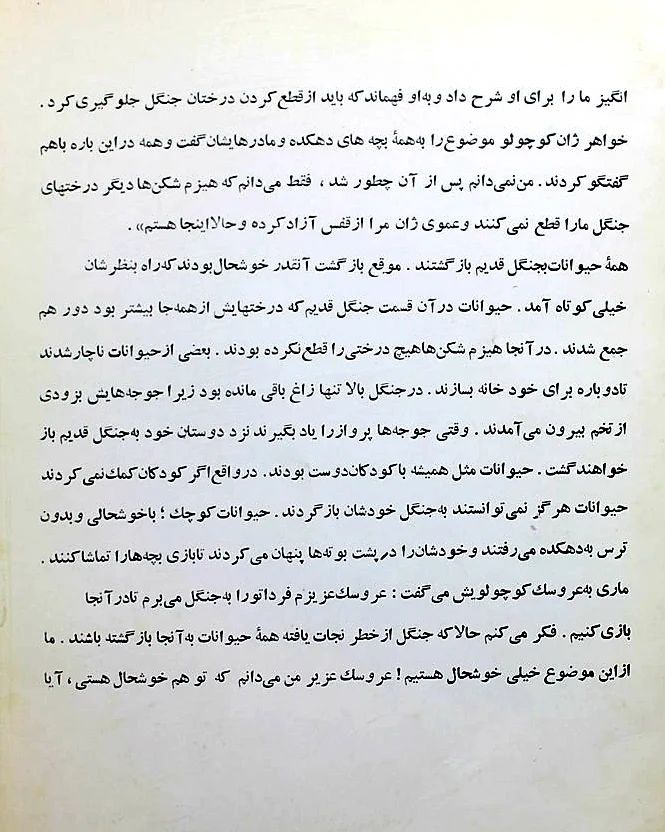 انگیز ما را برای او شرح داد و به‌او فهماندکه باید ازقطع کردن درختان جنگل جلوگیری کرد .
خواهر ژان کوچولو موضوع را به‌همهٔ بچه های دهکده ومادرهایشان گفت وهمه دراین باره باهم
گفتگو کردند . من نمی‌دانم پس از آن چطور شد ، فقط می‌دانم که هیزم شکن‌ها دیگر درختهای
جنگل مارا قطع نمی‌کنند وعموی ژان مرا ازقفس آزاد کرده وحالااینجا هستم» .
همهٔ حیوانات بجنگل قدیم باز گشتند . موقع باز گشت آنقدر خوشحال بودند که راه بنظرشان
خیلی کوتاه آمد . حیوانات درآن قسمت جنگل قدیم که درختهایش ازهمه‌جا بیشتر بود دور هم
جمع شدند . درآنجا هیزم شکن‌هاهیچ درختی را قطع نکرده بودند . بعضی ازحیوانات ناچارشدند
تادوباره برای خود خانه بسازند . درجنگل بالا تنها زاغ باقی مانده بود زیرا جوجه‌هایش بزودی
ازتخم بیرون می‌آمدند . وقتی جوجه‌ها پروازرا یاد بگیرند نزد دوستان خود به‌جنگل قدیم باز
خواهندگشت . حیوانات مثل همیشه با کودکان‌دوست بودند . درواقع‌اگر کودکان کمك نمی‌کردند
حیوانات هرگز نمی‌توانستند به‌جنگل خودشان بازگردند . حیوانات کوچك ؛ باخوشحالی وبدون
ترس به‌دهکده می‌رفتند وخودشان‌را درپشت بوته‌ها پنهان می‌کردند تابازی بچه‌هارا تماشاکنند .
ماری به‌عروسك کوچولویش می‌گفت : عروسك‌عزیزم فرداتورا به‌جنگل می‌برم تادرآنجا
بازی کنیم . فکر می‌کنم حالاکه جنگل ازخطر نجات یافته همهٔ حیوانات به‌آنجا بازگشته باشند . ما
ازاین موضوع خیلی خوشحال هستیم ! عروسك عزیر من می‌دانم که تو هم خوشحال هستی ، آیا